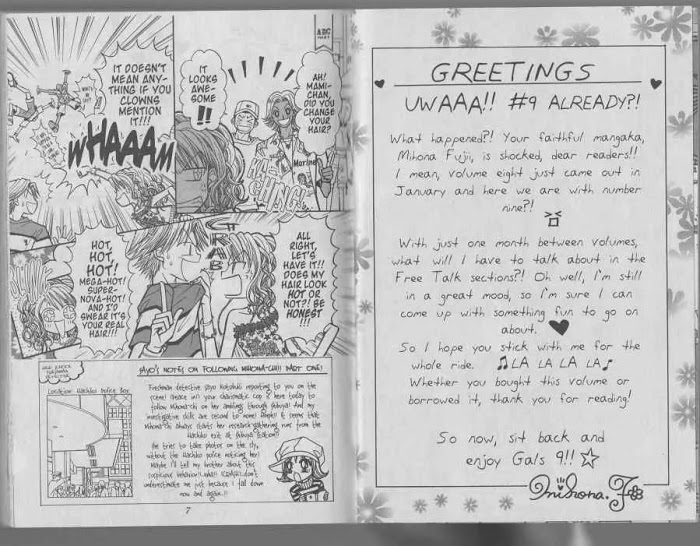 IT DOESN'T
MEAN ANY-
THING IF YOU
CLOWNS
MENTION
IT!!!
WHAAAM
IT
LOOKS
AWE-
SOME
!!
AH!
MAMI-
CHAN,
DID YOU
CHANGE
YOUR
HAIR?
HOT,
HOT,
HOT!
MEGA-HOT!
SUPER-
NOVA-HOT!
AND I'D
SWEAR IT'S
YOUR REAL
HAIR!!!
GRAB
ALL
RIGHT,
LET'S
HAVE IT!!
DOES MY
HAIR LOOK
HOT OR
NOT?! BE
HONEST
!!!
SAYO'S NOTES ON FOLLOWING MIHONA-CHI! PART ONE!
Location: Hachiko Police Box
Freshman detective Sayo Kotobuki reporting to you on the
scene! Greace in's your charismatic cop is here today to
follow Mihona-chi on her
investigative skills are second to none!
Mihona-chi always starts her research-gathering runs from the
Hachiko exit at Shibuya Station!!
She tries to take photos on the sly,
without the Hachiko police noticing her!
Maybe I'll tell my brother about this
suspicious behavior!
underestimate me just because I fall down
now and again!!
7
GREETINGS
UWAAA!! #9 ALREADY?!
What happened?! Your faithful mangaka,
Mihona Fujii, is shocked, dear readers!!
I mean, volume eight just came out in
January and here we are with number
nine?!
With just one month between volumes,
what will I have to talk about in the
Free Talk sections?! Oh well, I'm still
in a great mood, so I'm sure I can
come up with something fun to go on
about.
So I hope you stick with me for the
whole ride. ♫LA LA LA LA♪
Whether you bought this volume or
borrowed it, thank you for reading!
So now, sit back and
enjoy Gals 9!! ☆
Mihona. F